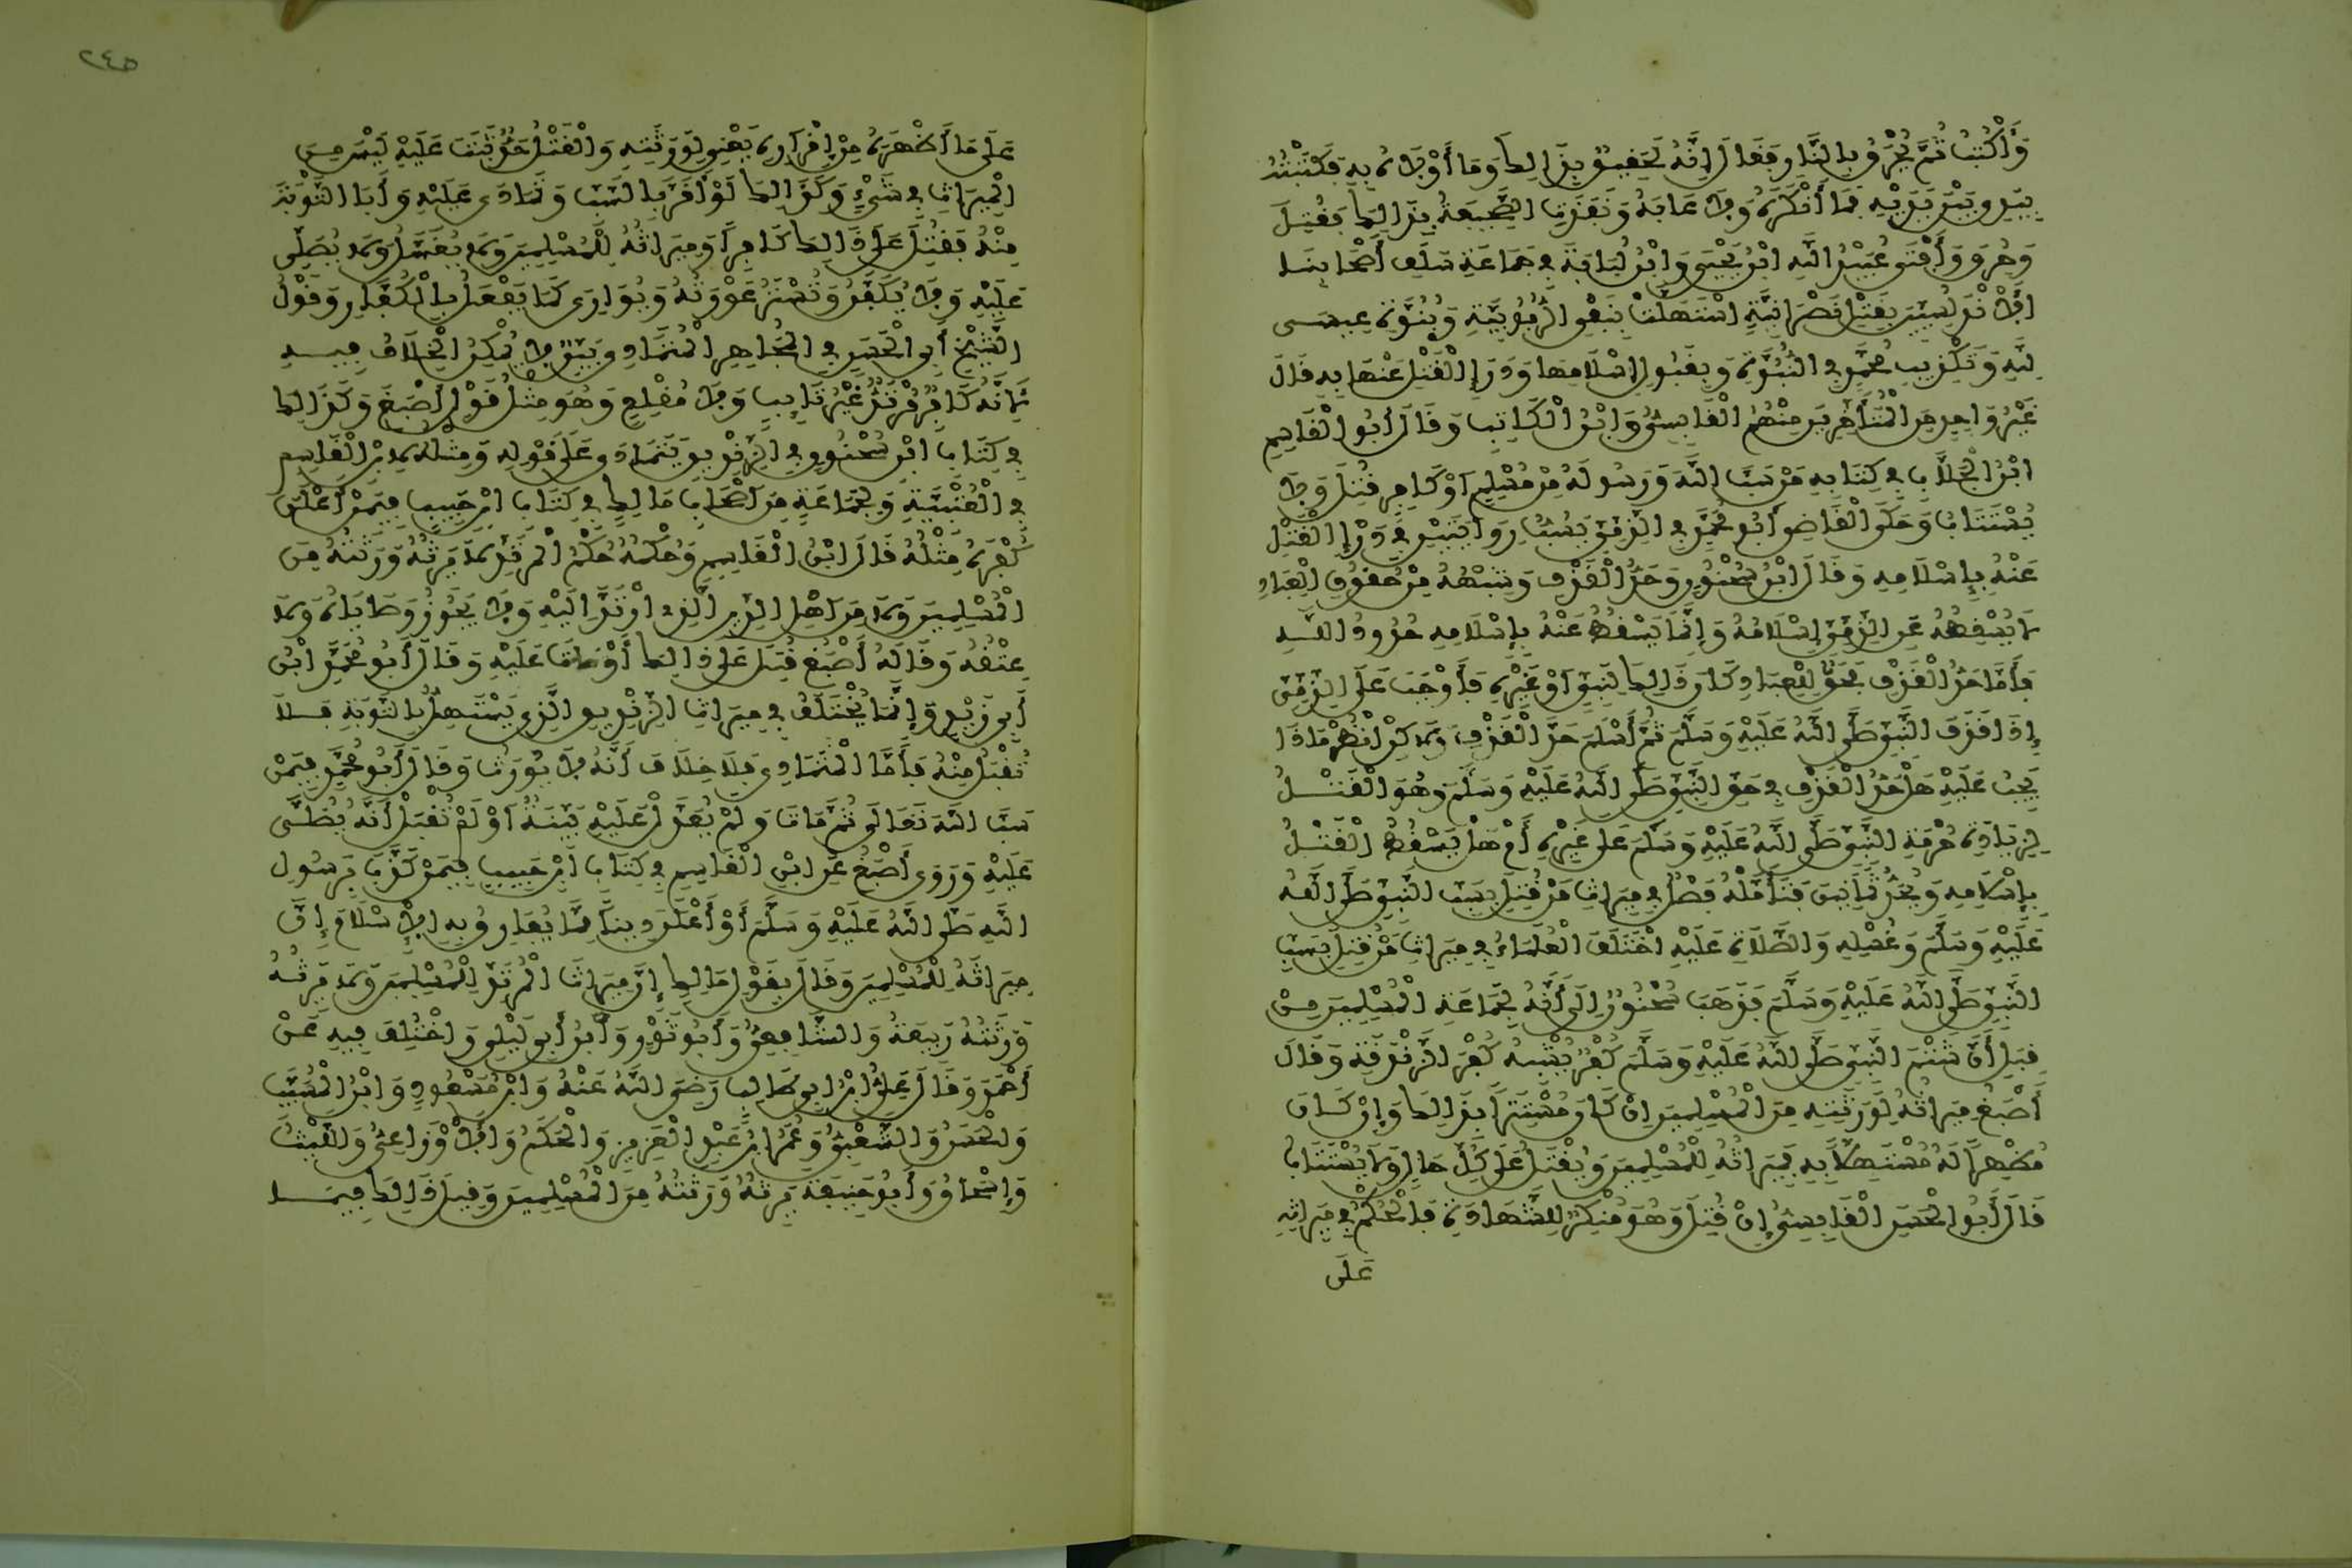 وَأُكْتُبُ ثُمَّ يُحْرَقُ بِالنَّارِ فَقَالَ إِنَّهُ لَحَقِيقٌ بِذَالِكَ وَمَا أَوْلَاهُ بِهِ فَكَتَبْتُهُ
بِيَدِي بَيْنَ يَدَيْهِ فَمَا أَنْكَرَهُ وَلَا عَابَهُ وَنَفَذَتِ الصَّحِيفَةُ بِذَالِكَ فَقُتِلَ
وَحُرِقَ وَأَفْتَى عُبَيْدُ اللَّهِ ابْنُ يَحْيَى وَابْنُ لُبَابَةَ فِي جَمَاعَةِ سَلَفِ أَصْحَابِنَا
الْأَنْدَلُسِيِّينَ بِقَتْلِ نَصْرَانِيَّةٍ اسْتَهَلَّتْ بِنَفْيِ الرُّبُوبِيَّةِ وَبُنُوَّةِ عِيسَى
لِلَّهِ وَتَكْذِيبِ مُحَمَّدٍ فِي النُّبُوَّةِ وَبِقَبُولِ إِسْلَامِهَا وَدَرْإِ الْقَتْلِ عَنْهَا بِهِ قَالَ
غَيْرُ وَاحِدٍ مِنَ الْمُتَأَخِّرِينَ مِنْهُمُ الْقَابِسِيُّ وَابْنُ الْكَاتِبِ وَقَالَ أَبُو الْقَاسِمِ
ابْنُ الْجَلَّابِ فِي كِتَابِهِ مَنْ سَبَّ اللَّهَ وَرَسُولَهُ مِنْ مُسْلِمٍ أَوْ كَافِرٍ قُتِلَ وَلَا
يُسْتَتَابُ وَحَكَى الْقَاضِي أَبُو مُحَمَّدٍ فِي الذِّمِّيِّ يَسُبُّ رِوَايَتَيْنِ فِي دَرْإِ الْقَتْلِ
عَنْهُ بِإِسْلَامِهِ وَقَالَ ابْنُ سُحْنُونٍ وَحَدُّ الْقَذْفِ وَشِبْهُهُ مِنْ حُقُوقِ الْعِبَادِ
لَا يُسْقِطُهُ عَنِ الذِّمِّيِّ إِسْلَامُهُ وَإِنَّمَا يَسْقُطُ عَنْهُ بِإِسْلَامِهِ حُدُودُ اللَّهِ
فَأَمَّا حَدُّ الْقَذْفِ فَحَقٌّ لِلْعِبَادِ كَانَ ذَالِكَ لِنَبِيٍّ أَوْ غَيْرِهِ فَأَوْجَبَ عَلَى الذِّمِّيِّ
إِذَا قَذَفَ النَّبِيَّ صَلَّى اللَّهُ عَلَيْهِ وَسَلَّمَ ثُمَّ أَسْلَمَ حَدَّ الْقَذْفِ وَلَكِنْ انْظُرْ مَاذَا
يَجِبُ عَلَيْهِ هَلْ حَدُّ الْقَذْفِ فِي حَقِّ النَّبِيِّ صَلَّى اللَّهُ عَلَيْهِ وَسَلَّمَ وَهُوَ الْقَتْلُ
لِزِيَادَةِ حُرْمَةِ النَّبِيِّ صَلَّى اللَّهُ عَلَيْهِ وَسَلَّمَ عَلَى غَيْرِهِ أَمْ هَلْ يَسْقُطُ الْقَتْلُ
بِإِسْلَامِهِ وَيُحَدُّ ثَمَانِينَ فَتَأَمَّلْهُ فَصْلٌ فِي مِيرَاثِ مَنْ قُتِلَ بِسَبِّ النَّبِيِّ صَلَّى اللَّهُ
عَلَيْهِ وَسَلَّمَ وَغُسْلِهِ وَالصَّلَاةِ عَلَيْهِ اخْتَلَفَ الْعُلَمَاءُ فِي مِيرَاثِ مَنْ قُتِلَ بِسَبِّ
النَّبِيِّ صَلَّى اللَّهُ عَلَيْهِ وَسَلَّمَ فَذَهَبَ سُحْنُونٌ إِلَى أَنَّهُ لِجَمَاعَةِ الْمُسْلِمِينَ مِنْ
قِبَلِ أَنَّ شَتْمَ النَّبِيِّ صَلَّى اللَّهُ عَلَيْهِ وَسَلَّمَ كُفْرٌ يُشْبِهُ كُفْرَ الزَّنْدَقَةِ وَقَالَ
أَصْبَغُ مِيرَاثُهُ لِوَرَثَتِهِ مِنَ الْمُسْلِمِينَ إِنْ كَانَ مُسْتَتِرًا بِذَالِكَ وَإِنْ كَانَ
مُظْهِرًا لَهُ مُسْتَهِلًّا بِهِ فَمِيرَاثُهُ لِلْمُسْلِمِينَ وَيُقْتَلُ عَلَى كُلِّ حَالٍ وَلَا يُسْتَتَابُ
قَالَ أَبُو الْحَسَنِ الْقَابِسِيُّ إِنْ قُتِلَ وَهُوَ مُنْكِرٌ لِلشَّهَادَةِ فَالْحُكْمُ فِي مِيرَاثِهِ
عَلَى
٢٤٥
عَلَى مَا أَظْهَرَهُ مِنْ إِقْرَارِهِ يَعْنِي لِوَرَثَتِهِ وَالْقَتْلُ حَدٌّ ثَبَتَ عَلَيْهِ لَيْسَ مِنَ
الْمِيرَاثِ فِي شَيْءٍ وَكَذَالِكَ لَوْ أَقَرَّ بِالسَّبِّ وَتَمَادَى عَلَيْهِ وَأَبَا التَّوْبَةَ
مِنْهُ فَقُتِلَ عَلَى ذَالِكَ كَافِرًا وَمِيرَاثُهُ لِلْمُسْلِمِينَ وَلَا يُغَسَّلُ وَلَا يُصَلَّى
عَلَيْهِ وَلَا يُكَفَّنُ وَتُسْتَرُ عَوْرَتُهُ وَيُوَارَى كَمَا يُفْعَلُ بِالْكُفَّارِ وَقَوْلُ
الشَّيْخِ أَبِي الْحَسَنِ فِي الْمُجَاهِرِ الْمُتَمَادِي بَيِّنٌ لَا يُمْكِنُ الْخِلَافُ فِيهِ
لِأَنَّهُ كَافِرٌ مُرْتَدٌّ غَيْرُ تَايِبٍ وَلَا مُقْلِعٍ وَهُوَ مِثْلُ قَوْلِ أَصْبَغَ وَكَذَالِكَ
فِي كِتَابِ ابْنِ سُحْنُونٍ فِي الزِّنْدِيقِ يَتَمَادَى عَلَى قَوْلِهِ وَمِثْلُهُ لِابْنِ الْقَاسِمِ
فِي الْعُتْبِيَّةِ وَلِجَمَاعَةٍ مِنْ أَصْحَابِ مَالِكٍ فِي كِتَابِ ابْنِ حَبِيبٍ فِيمَنْ أَعْلَنَ
كُفْرَهُ مِثْلُهُ قَالَ ابْنُ الْقَاسِمِ وَحُكْمُهُ حُكْمُ الْمُرْتَدِّ لَا تَرِثُهُ وَرَثَتُهُ مِنَ
الْمُسْلِمِينَ وَلَا مِنْ أَهْلِ الدِّينِ الَّذِي ارْتَدَّ إِلَيْهِ وَلَا يَجُوزُ وَصَايَاهُ وَلَا
عِتْقُهُ وَقَالَهُ أَصْبَغُ قُتِلَ عَلَى ذَالِكَ أَوْ مَاتَ عَلَيْهِ وَقَالَ أَبُو مُحَمَّدٍ ابْنُ
أَبِي زَيْدٍ وَإِنَّمَا يُخْتَلَفُ فِي مِيرَاثِ الزِّنْدِيقِ الَّذِي يَسْتَهِلُّ بِالتَّوْبَةِ فَلَا
تُقْبَلُ مِنْهُ فَأَمَّا الْمُتَمَادِي فَلَا خِلَافَ أَنَّهُ لَا يُورَثُ وَقَالَ أَبُو مُحَمَّدٍ فِيمَنْ
سَبَّ اللَّهَ تَعَالَى ثُمَّ مَاتَ وَلَمْ يُعَدَّلْ عَلَيْهِ بَيِّنَةٌ أَوْ لَمْ تُقْبَلْ أَنَّهُ يُصَلَّى
عَلَيْهِ وَرَوَى أَصْبَغُ عَنِ ابْنِ الْقَاسِمِ فِي كِتَابِ ابْنِ حَبِيبٍ فِيمَنْ كَذَّبَ بِرَسُولِ
اللَّهِ صَلَّى اللَّهُ عَلَيْهِ وَسَلَّمَ أَوْ أَعْلَنَ دِينًا مِمَّا يُفَارِقُ بِهِ الْإِسْلَامَ إِنَّ
مِيرَاثَهُ لِلْمُسْلِمِينَ وَقَالَ بِقَوْلِ مَالِكٍ إِنَّ مِيرَاثَ الْمُرْتَدِّ لِلْمُسْلِمِينَ وَلَا تَرِثُهُ
وَرَثَتُهُ رَبِيعَةُ وَالشَّافِعِيُّ وَأَبُو ثَوْرٍ وَابْنُ أَبِي لَيْلَى وَاخْتُلِفَ فِيهِ عَنْ
أَحْمَدَ وَقَالَ عَلِيُّ ابْنُ أَبِي طَالِبٍ رَضِيَ اللَّهُ عَنْهُ وَابْنُ مَسْعُودٍ وَابْنُ الْمُسَيَّبِ
وَالْحَسَنُ وَالشَّعْبِيُّ وَعُمَرُ ابْنُ عَبْدِ الْعَزِيزِ وَالْحَكَمُ وَالْأَوْزَاعِيُّ وَاللَّيْثُ
وَإِسْحَاقُ وَأَبُو حَنِيفَةَ يَرِثُهُ وَرَثَتُهُ مِنَ الْمُسْلِمِينَ وَقِيلَ ذَالِكَ فِيمَا